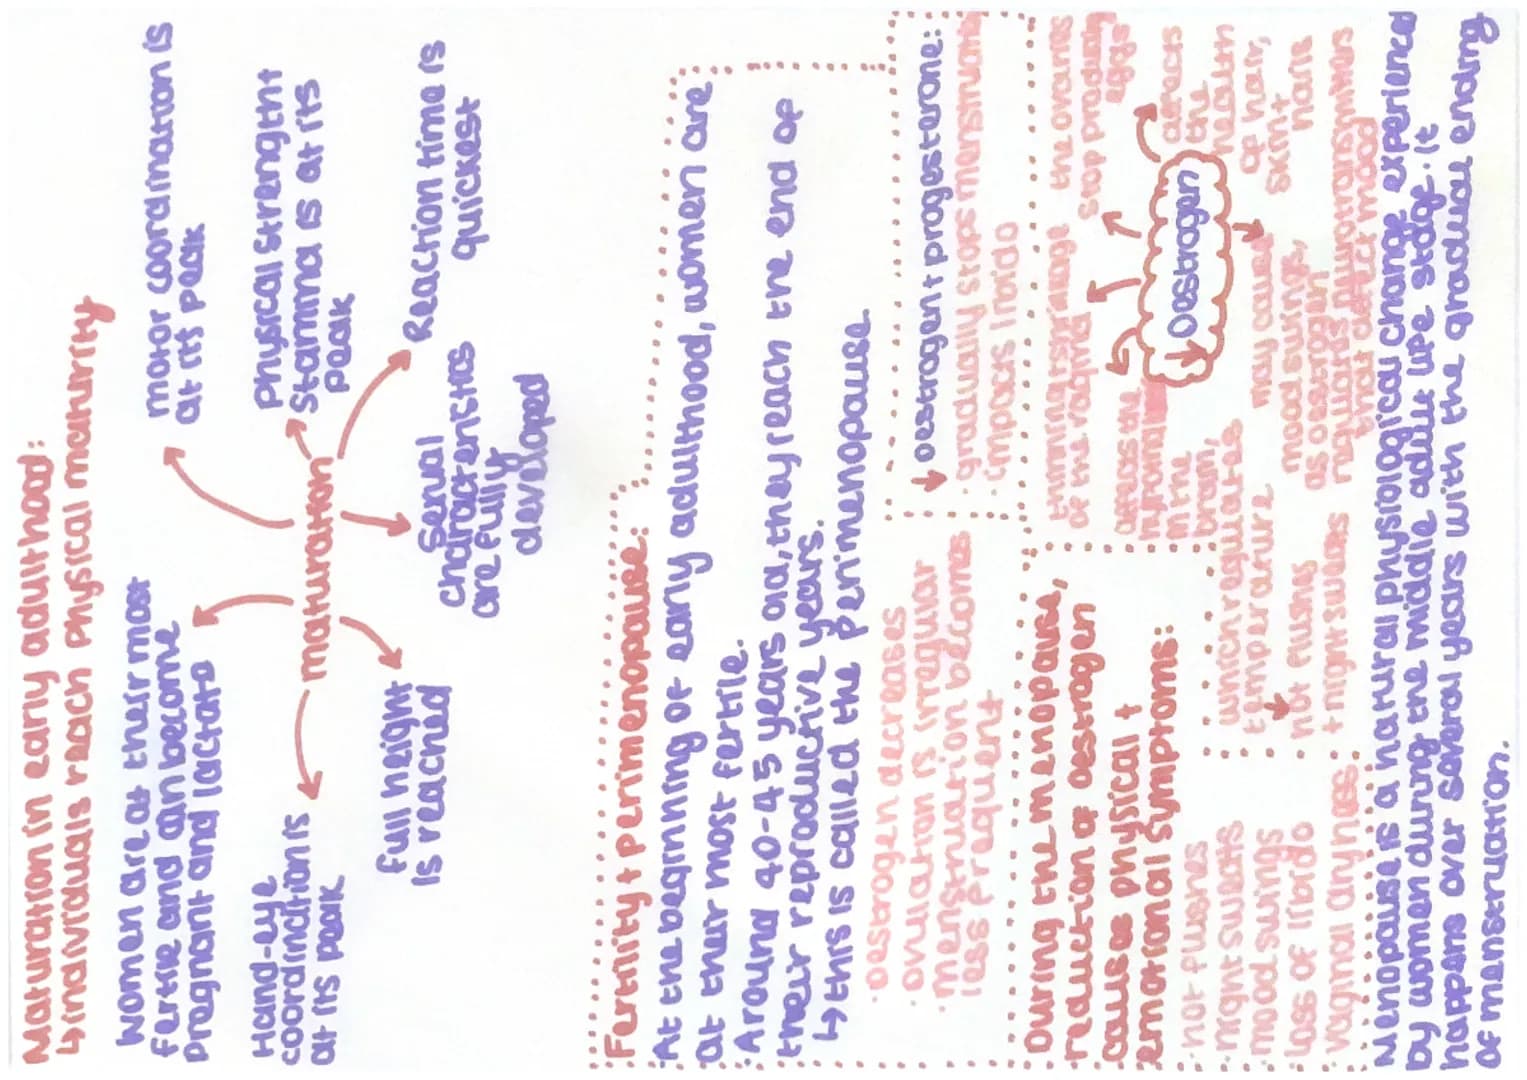 Maturation in early adulthood:
↳individuals reach physical maturity
women are at their most
fertile and can become
pregnant and lactate
motor coordination is
at its peak
Hand-eye
coordination is
at its peak
maturation
physical strength +
stamina is at its
peak
full height
is reached
Sexual
characteristics
are fully
developed
Reaction time is
quickest
Fertility + perimenopause:
·At the beginning of early adulthood, women are
at their most fertile.
·Around 40-45 years old, they reach the end of
their reproductive years.
↳ this is called the perimenopause.
·oestrogen decreases
·ovulation is irregular
·menstruation becomes
less frequent
↓ oestrogen + progesterone:
·gradually stops menstruation
·impacts libido
During the menopause,
reduction of oestrogen
causes physical +
emotional symptoms:
·hot flushes
·night sweats
·mood swings
·loss of libido
·vaginal dryness
thinning + shrinkage
of the vagina
the ovaries
stop producing
eggs
affects the
hypothalamus
in the
brain,
which regulates
temperature
hot flushes
+ night sweats
↓ Oestrogen
affects
the
health
of hair,
skin +
nails
may cause
mood swings,
as oestrogen
regulates neurotransmitters
that affect mood
Menopause is a natural physiological change experienced
by women during the middle adult life stage. It
happens over several years with the gradual ending
of menstruation.